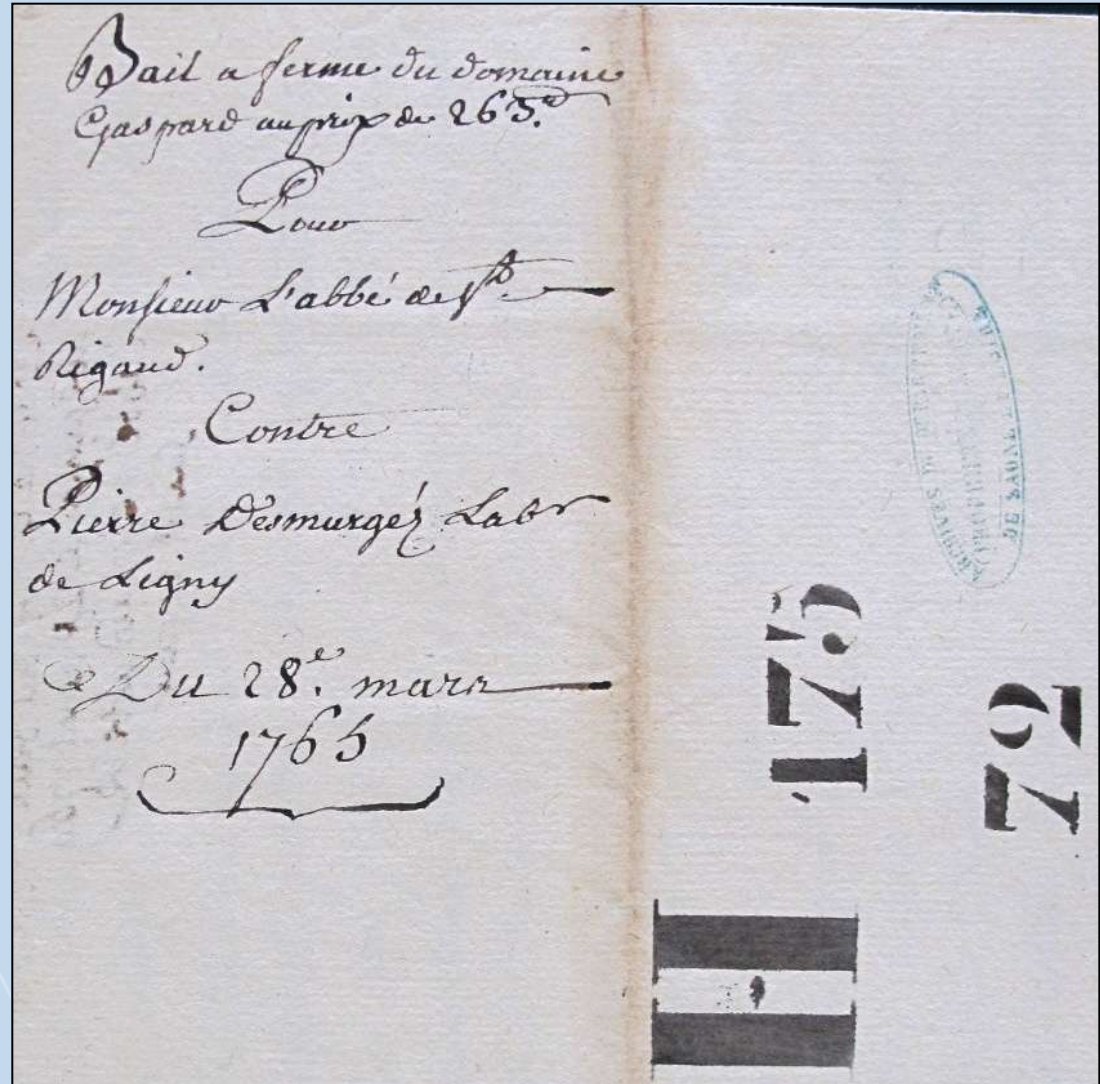 Bail a ferme du domaine
Gaspard au prix de 265.#
Pour
Monsieur L'abbé de St
Rigaud.
Contre
Pierre Desmurgéz Labr
de Ligny
Du 28.e mars
1765
H 175
72
ARCHIVES DE
DE SAONE